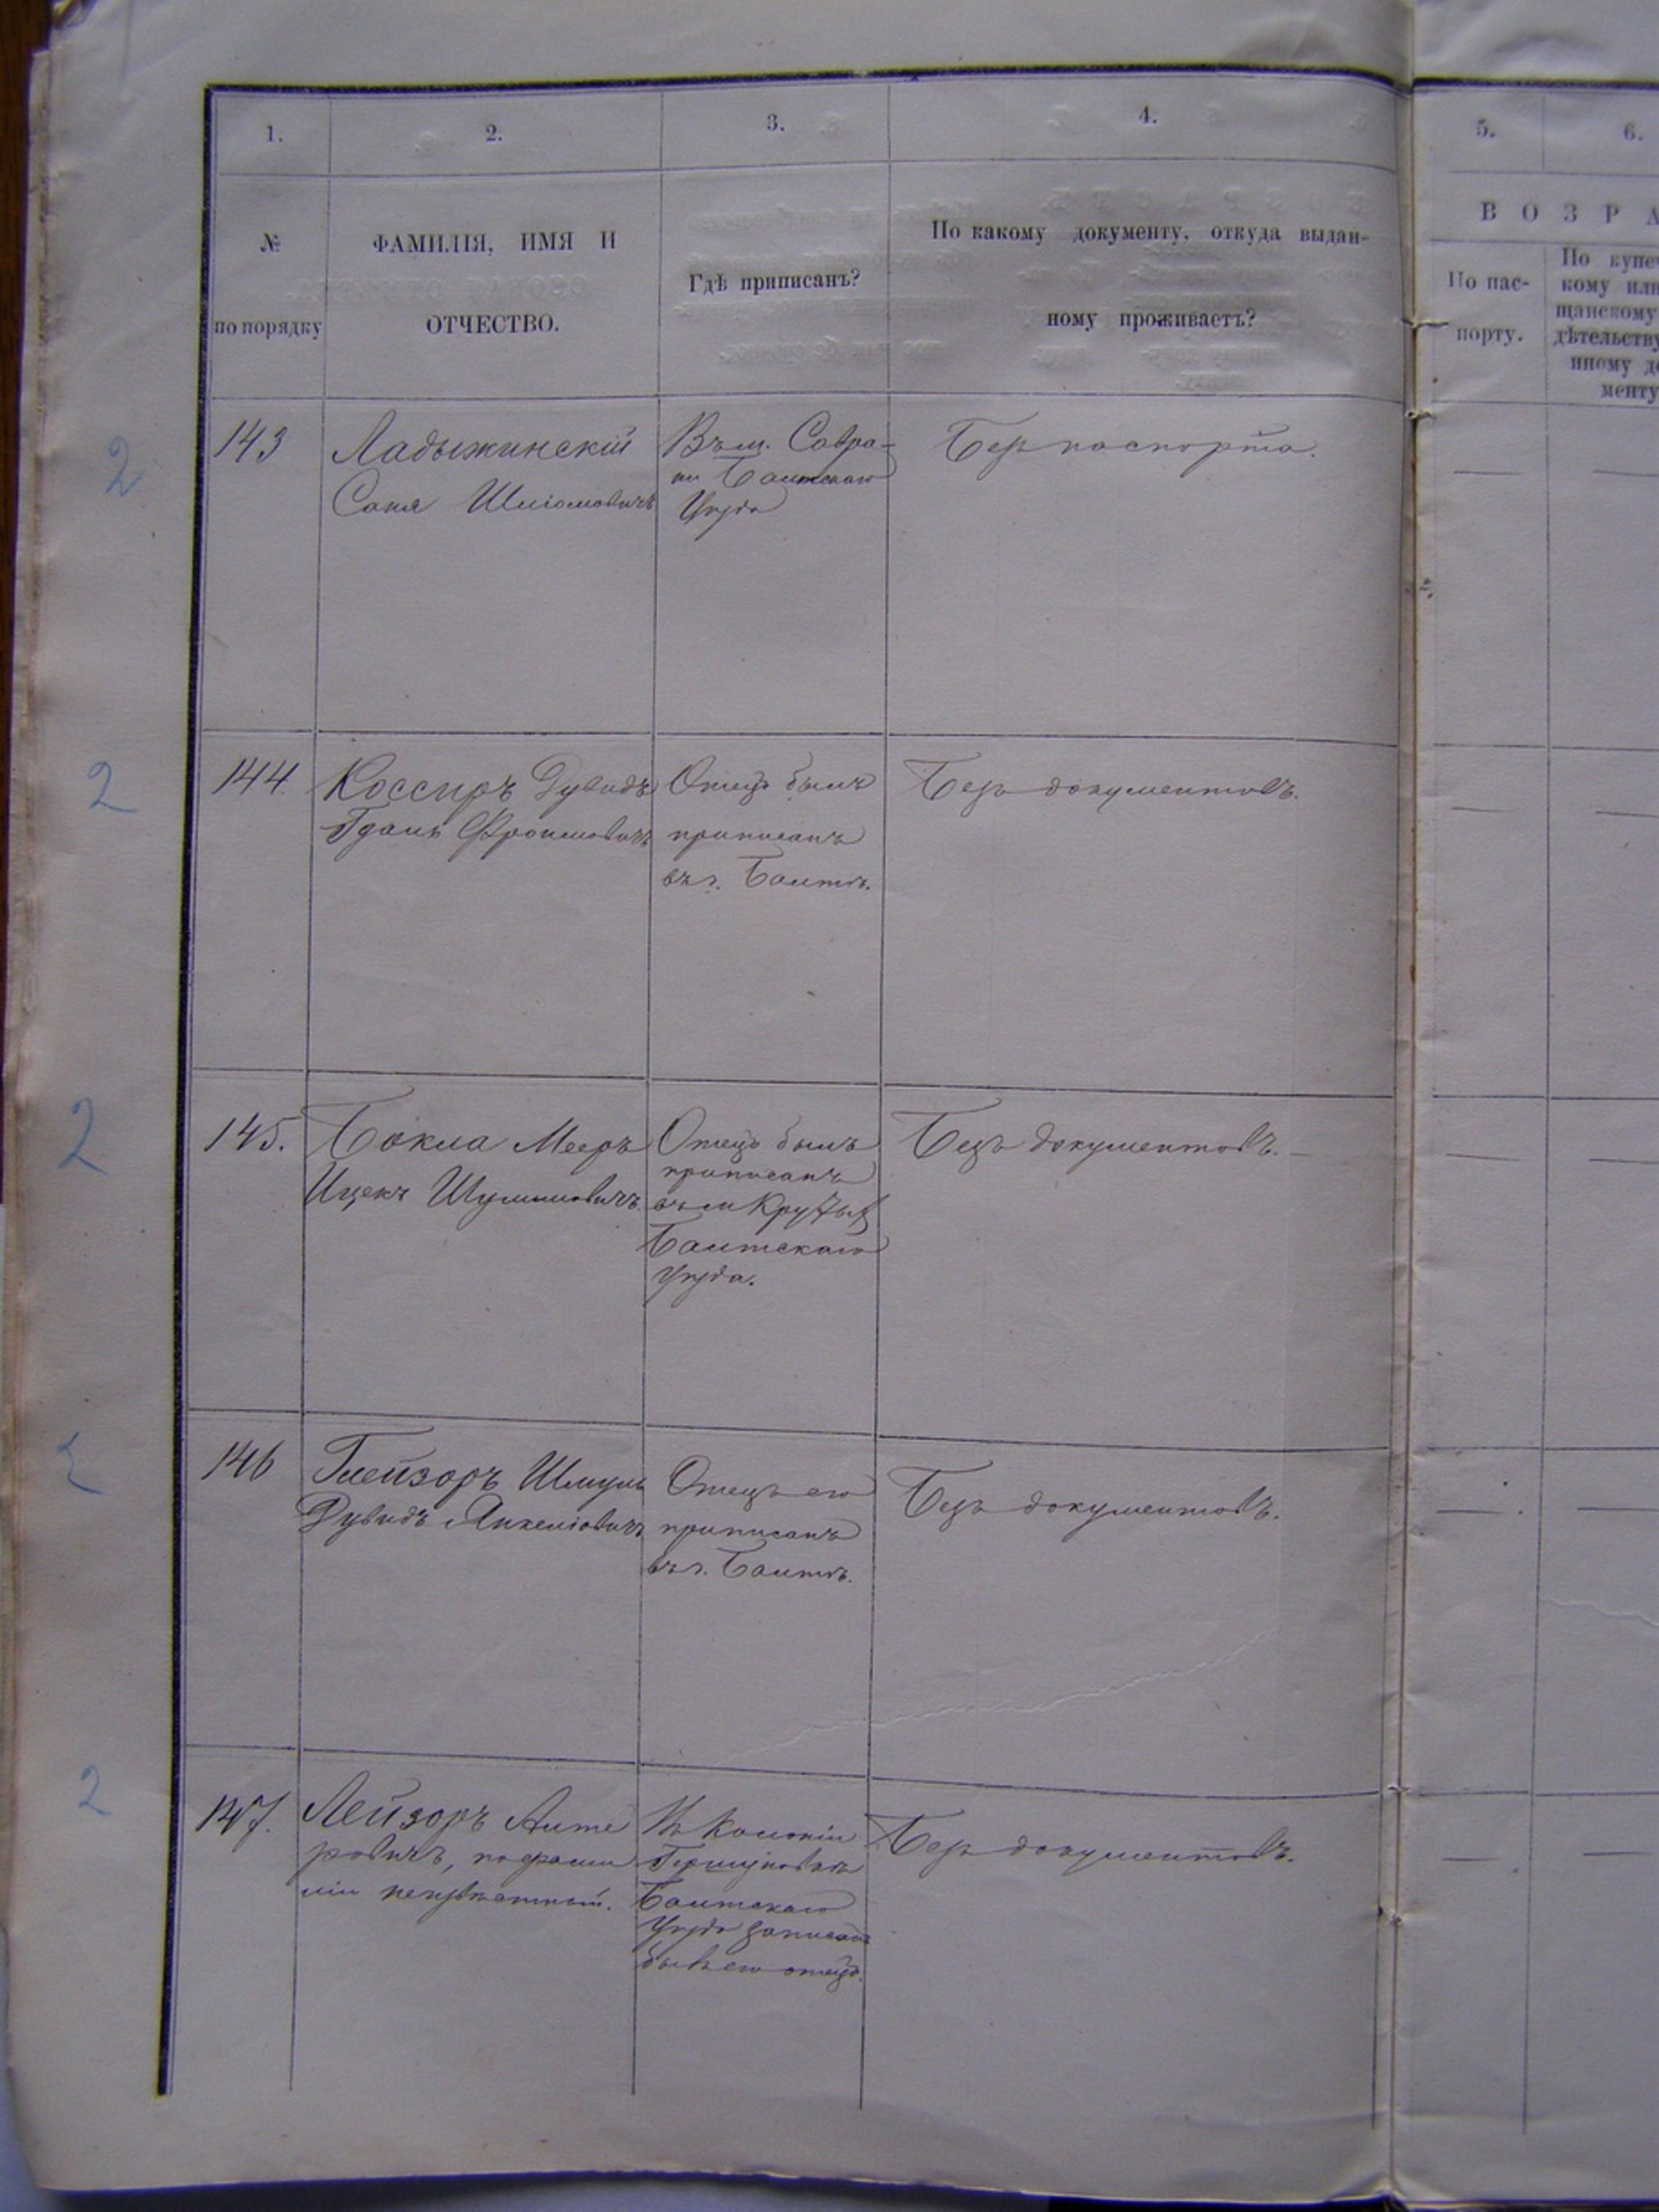 1.
2.
3.
4.
5.
6.
№
по порядку
ФАМИЛІЯ, ИМЯ И
ОТЧЕСТВО.
Гдѣ приписанъ?
По какому документу, откуда выдан-
ному проживаетъ?
ВОЗРА
По пас-
порту.
По купе
кому или
щанскому
дѣтельству
иному до
менту
2
143
Ладыжинскій
Саня Шліомовичъ
Въ м. Савра-
ни Балтскаго
Уѣзда
Безъ паспорта.
2
144.
Коссиръ Дувидъ
Гдаль Фроимовичъ
Отецъ былъ
приписанъ
въ г. Балтѣ.
Безъ документовъ.
2
145.
Бокла Мееръ
Ицекъ Шулимовичъ.
Отецъ былъ
приписанъ
въ м Крутыя
Балтскаго
Уѣзда.
Безъ документовъ.
2
146
Глейзоръ Шмуль
Дувидъ Янкеліовичъ
Отецъ его
приписанъ
въ г. Балтѣ.
Безъ документовъ.
2
147.
Лейзоръ Альте
ровичъ, по фами
ліи неизвѣстный.
Въ Колоніи
Балтскаго
Уѣзда записанъ
былъ его отецъ.
Безъ документовъ.